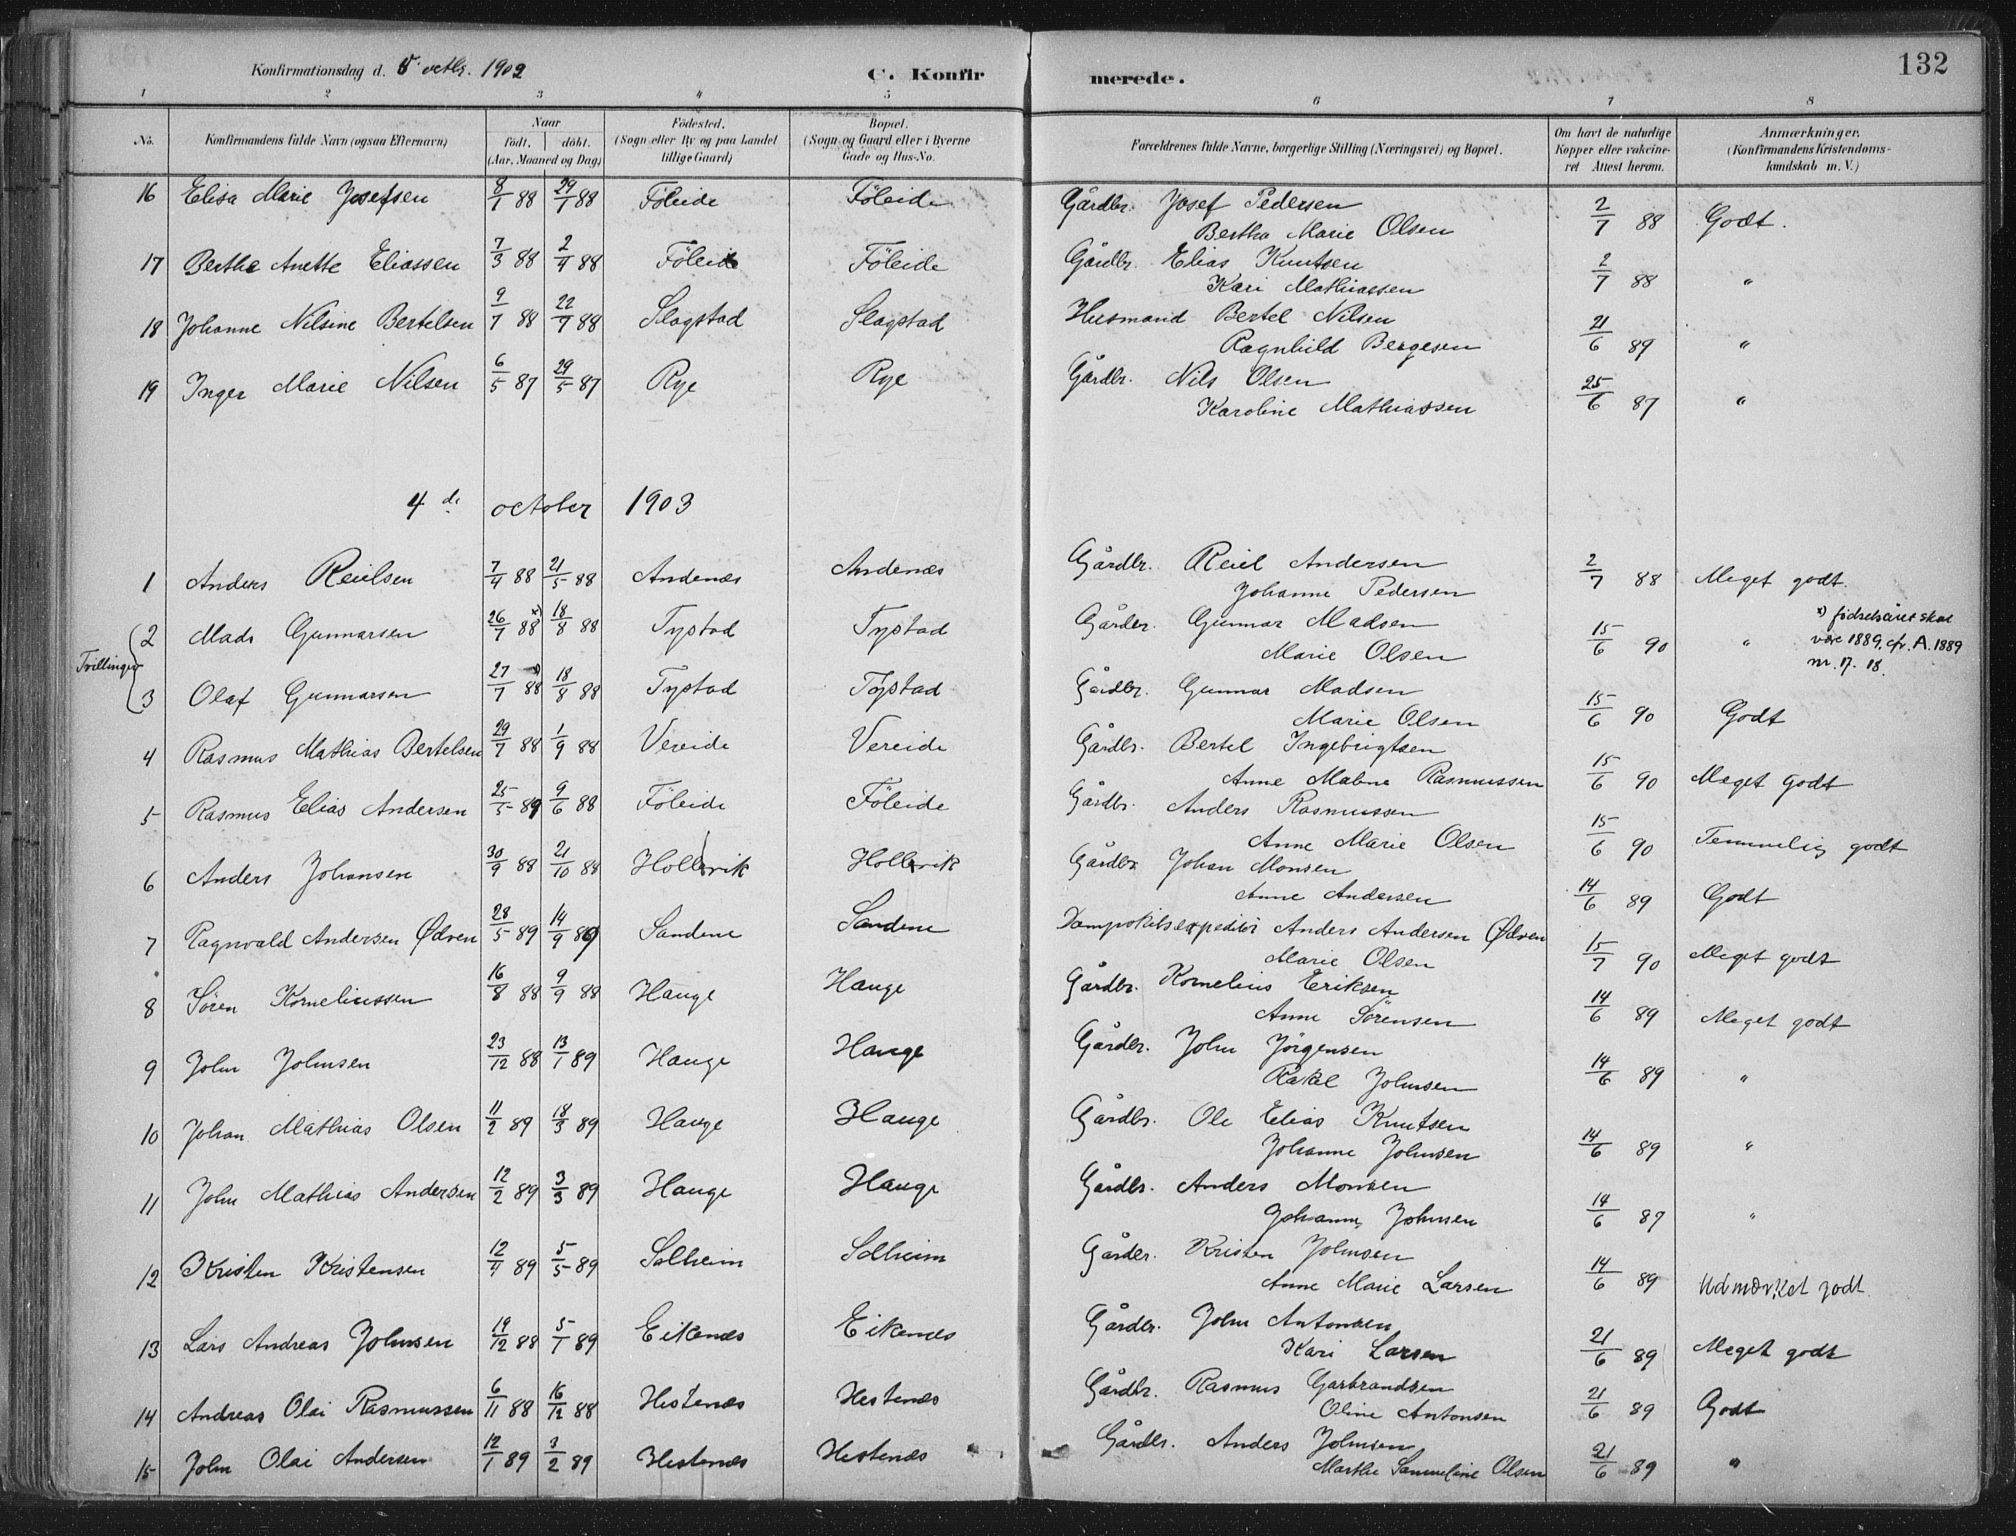 132
Konfirmationsdag d. 5 octbr. 1902 C. Konfirmerede.
1 2 3 4 5 6 7 8
No. Konfirmandens fulde Navn (ogsaa Efternavn) Naar født, døbt. (Aar, Maaned og Dag) Fødested. (Sogn eller By og paa Landet tillige Gaard) Bopæl. (Sogn og Gaard eller i Byerne Gade og Hus-No. Forældrenes fulde Navne, borgerlige Stilling (Næringsvei) og Bopæl. Om havt de naturlige Kopper eller vakcineret Attest herom. Anmærkninger. (Konfirmandens Kristendomskundskab m. V.)
16 Elisa Marie Josefsen 8/1 88 29/1 88 Föleide Föleide Gårdbr. Josef Pedersen 2/7 88 Godt.
Bertha Marie Olsen
17 Berthe Anette Eliassen 7/3 88 2/4 88 Föleide Föleide Gårdbr. Elias Knutsen 2/7 88 "
Kari Mathiassen
18 Johanne Nilsine Bertelsen 9/7 88 22/7 88 Slagstad Slagstad Husmand Bertel Nilsen 21/6 89 "
Ragnhild Bergesen
19 Inger Marie Nilsen 6/5 87 29/5 87 Rye Rye Gårdbr. Nils Olsen 25/6 87 "
Karoline Mathiassen
4de october 1903
1 Anders Reielsen 7/4 88 21/5 88 Andenæs Andenæs Gårdbr. Reiel Andersen 2/7 88 Meget godt.
Johanne Pedersen
Tvillinger
2 Mads Gunnarsen 26/7 88 x) 18/8 88 Tystad Tystad Gårdbr. Gunnar Madsen 15/6 90 " x) födselsåret skal være 1889, cfr. A. 1889 nr. 17. 18.
Marie Olsen
3 Olaf Gunnarsen 27/7 88 18/8 88 Tystad Tystad Gårdbr. Gunnar Madsen 15/6 90 Godt
Marie Olsen
4 Rasmus Mathias Bertelsen 29/7 88 1/9 88 Vereide Vereide Gårdbr. Bertel Ingebrigtsen 15/6 90 Meget godt
Anne Malene Rasmussen
5 Rasmus Elias Andersen 25/5 89 9/6 88 Föleide Föleide Gårdbr. Anders Rasmussen 15/6 90 Temmelig godt
Anne Marie Olsen
6 Anders Johansen 30/9 88 21/10 88 Hollevik Hollevik Gårdbr. Johan Monsen 14/6 89 Godt
Anne Andersen
7 Ragnvald Andersen Ødven 28/5 89 14/9 89 Sandene Sandene Dampskibsexpeditör Anders Andersen Ødven 15/7 90 Meget godt
Marie Olsen
8 Sören Korneliussen 16/8 88 9/9 88 Hauge Hauge Gårdbr. Kornelius Eriksen 14/6 89 Meget godt
Anne Sörensen
9 John Johnsen 23/12 88 13/1 89 Hauge Hauge Gårdbr. John Jörgensen 14/6 89 "
Rakel Johnsen
10 Johan Mathias Olsen 11/2 89 18/3 89 Hauge Hauge Gårdbr. Ole Elias Knutsen 14/6 89 "
Johanne Johnsen
11 John Mathias Andersen 12/2 89 3/3 89 Hauge Hauge Gårdbr. Anders Monsen 14/6 89 "
Johanne Johnsen
12 Kristen Kristensen 12/4 89 5/5 89 Solheim Solheim Gårdbr. Kristen Johnsen 14/6 89 Udmærket godt.
Anne Marie Larsen
13 Lars Andreas Johnsen 19/12 88 5/1 89 Eikenæs Eikenæs Gårdbr. John Antonsen 21/6 89 Meget godt
Kari Larsen
14 Andreas Olai Rasmussen 6/11 88 16/12 88 Hestenæs Hestenæs Gårdbr. Rasmus Garbrandsen 21/6 89 Godt
Oline Antonsen
15 John Olai Andersen 12/1 89 3/2 89 Hestenæs Hestenæs Gårdbr. Anders Johnsen 21/6 89 "
Marthe Sammeline Olsen